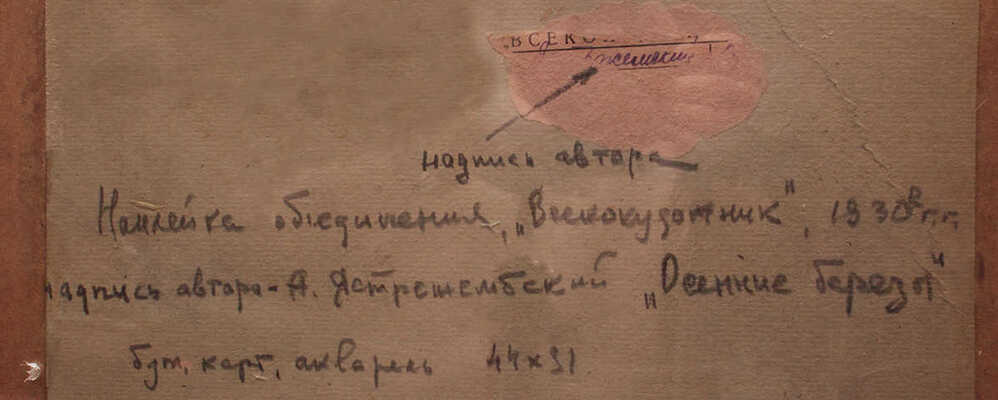 „ВСЕКО
надпись автора
Наклейка объединения, „Всекохудожник", 1930е г.г.
надпись автора - А. Ястржембский „Осенние березы"
бум. карт, акварель 44х31